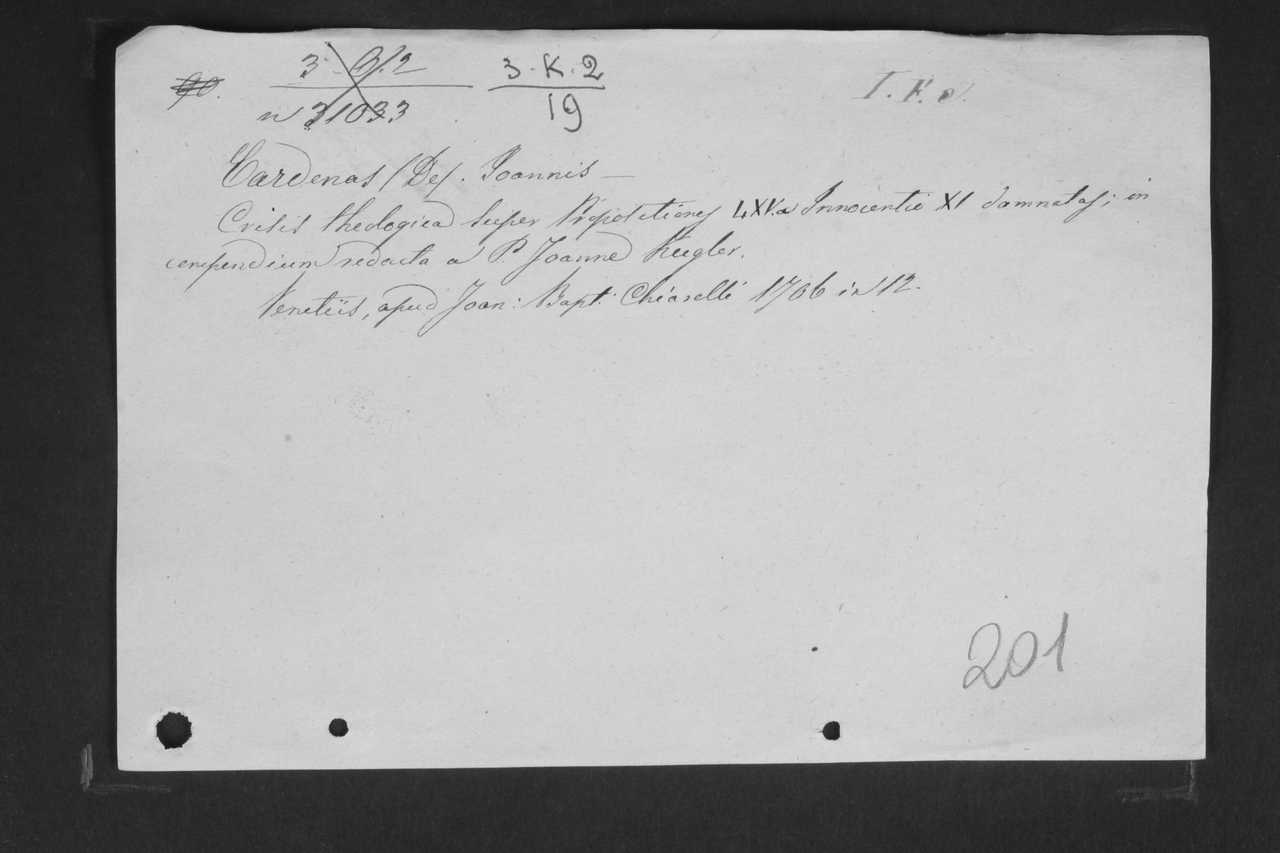 90.
3 G. 2
3. K. 2
I. F. e.
n 31033
19
Cardenas (De). Joannis —
Crisis theologica super Propositiones LXV a Innocentio XI damnatas; in
compendium redacta a P. Joanne Kugler.
Venetiis, apud Joan: Bapt: Chiarelli 1706 in 12.
201